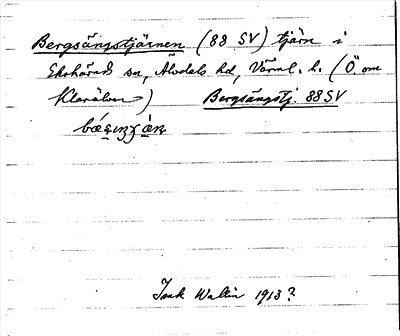 Bergsängstjärnen (88 SV) tjärn i
Ekshärads sn, Älvdals hd, Värml. l. (Ö om
Klarälven) Bergsängstj. 88 SV
Isak Wallin 1913?